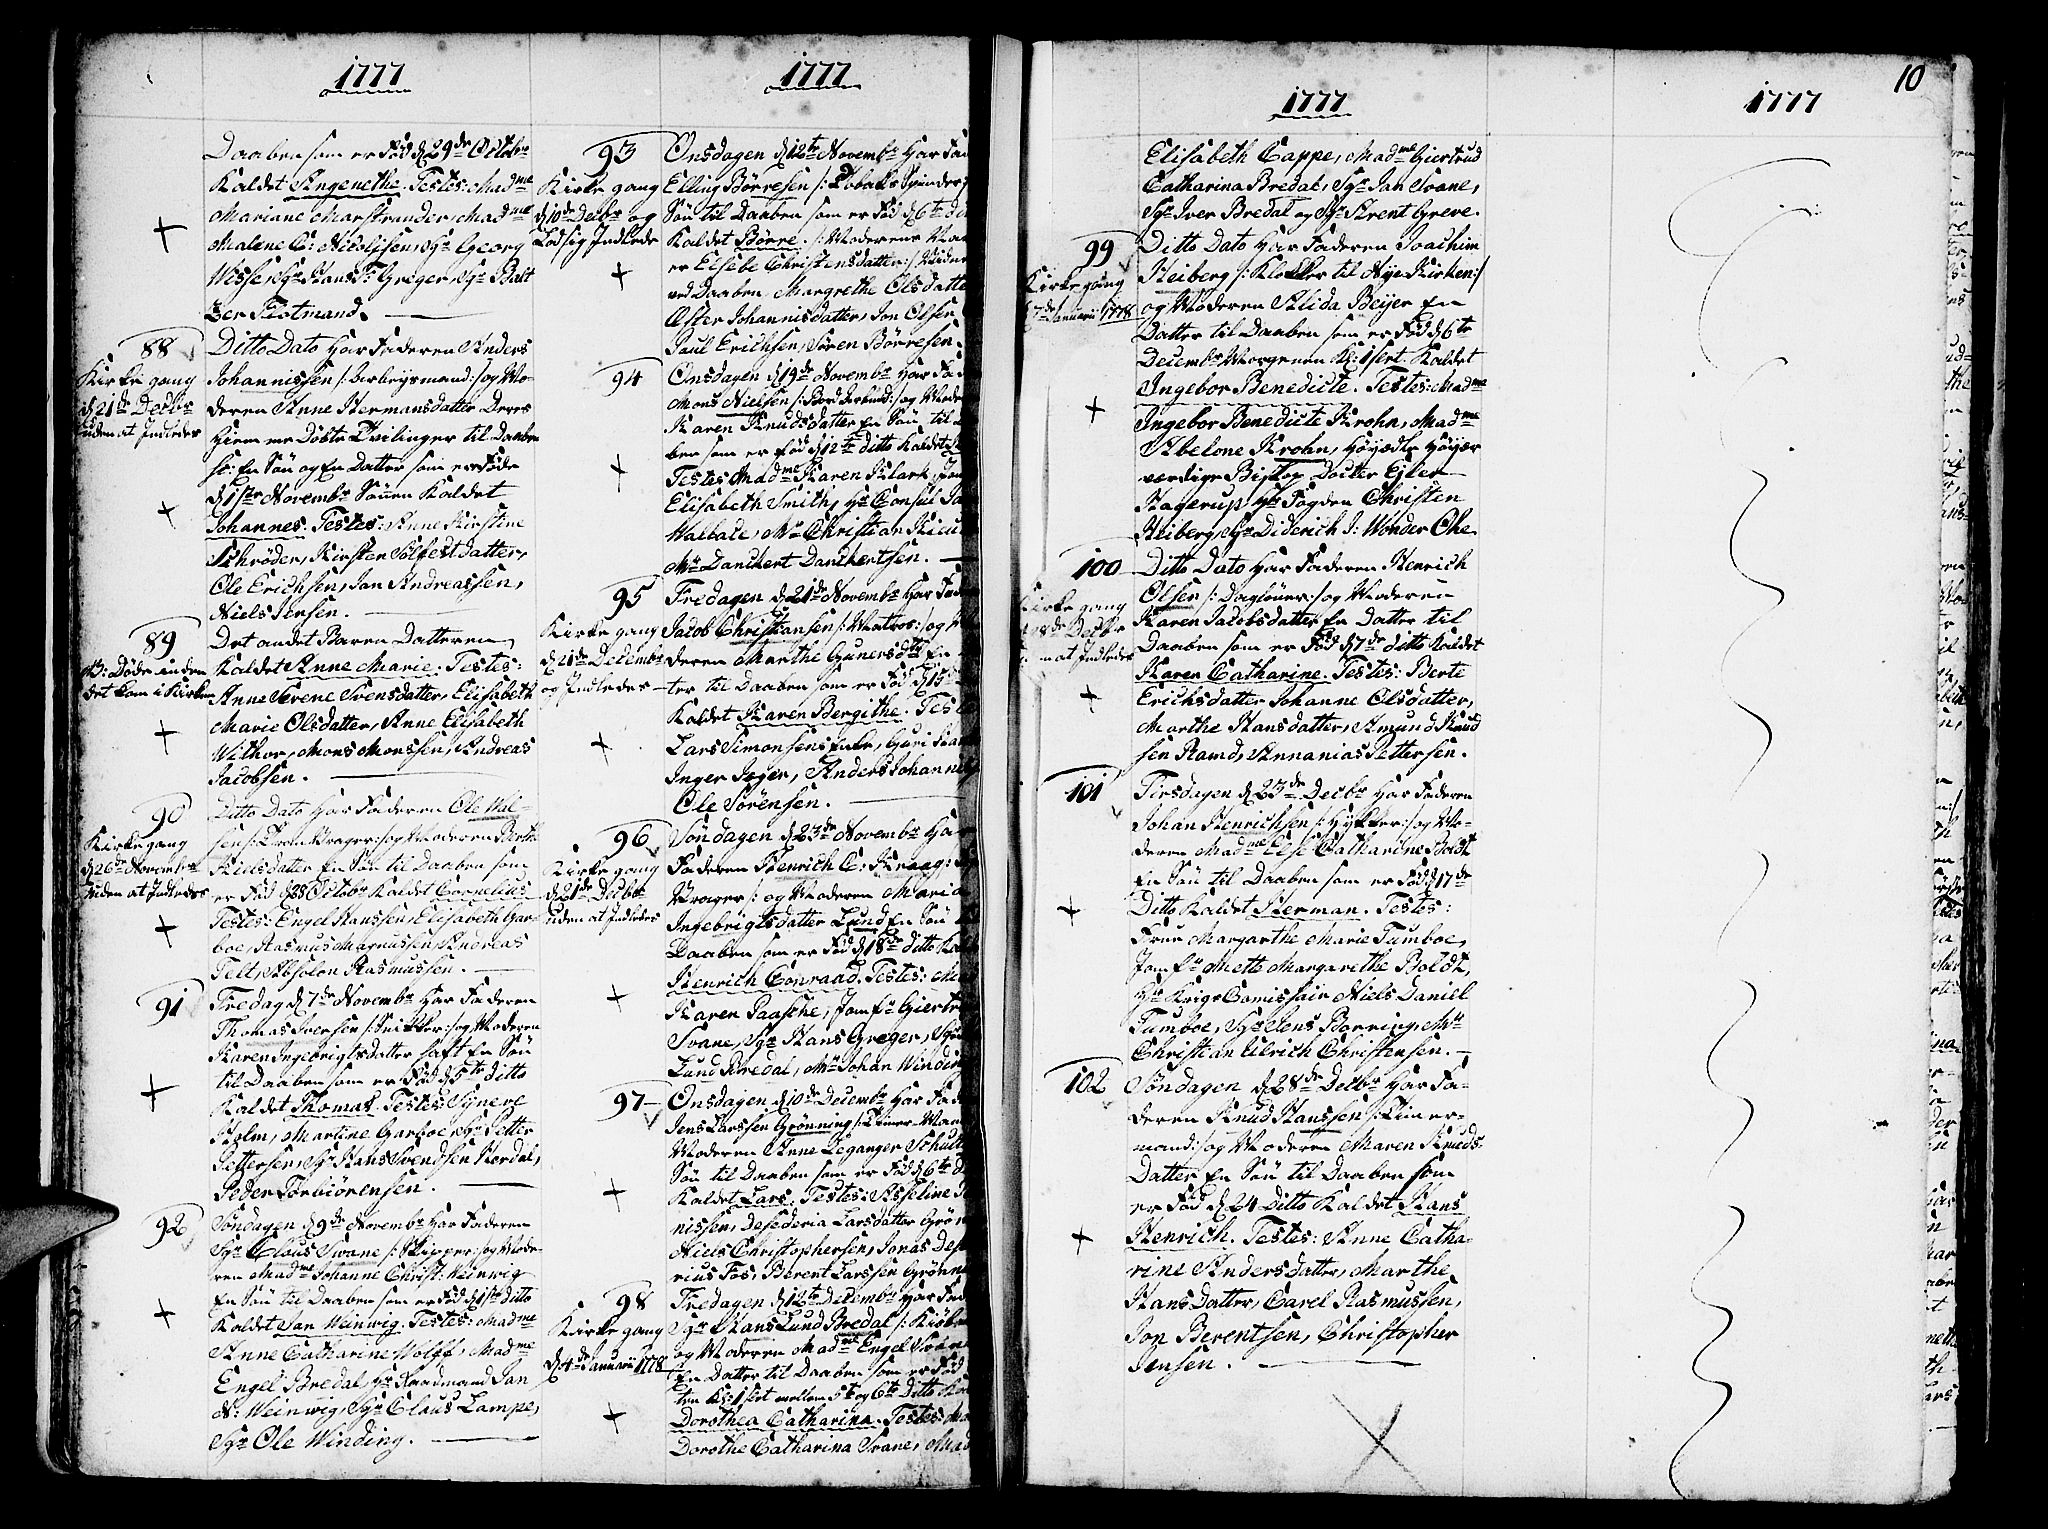 1777
Daaben som er Fød d 29de Octobr
Kaldet Angenethe. Testes: Madme
Mariane Marstrander, Madme
Malene C: Nicolisen, Sr Georg
Wesse, Sr Hans F: Greger, Sr Balt
zer Flotmand.
88
Kirke gang
d 21de Decbr
uden at Indledes
Ditto Dato Har Faderen Anders
Johannissen /: Arbeysmand :/ og Mo-
deren Anne Hermansdatter Deres
Hiemme Døbte Tvilinger til Daaben
sc: En Søn og En Datter som er Føde
d 1ste Novembr Sønen Kaldet
Johannes. Testes: Anne Kirstine
Schrøder, Kirsten Solfestdatter,
Ole Erichsen, Jan Andreassen,
Niels Jensen.
89
NB: Døde inden
det kom i Kirken
Det andet Baren Datteren
Kaldet Anne Marie. Testes:
Anne Serene Svensdatter, Elisabeth
Marie Olsdatter, Anne Elisabeth
Withor, Mons Monssen, Andreas
Jacobsen.
90
Kirke gang
d 26de Novembr
uden at Indledes
Ditto Dato Har Faderen Ole
sen /: Drager :/ og Moderen
Nielsdatter En Søn til Daaben som
er Fød d 28 Octobr Kaldet Cornelius
Testes: Engel Hanssen, Elisabeth Gar-
boe, Rasmus Magnussen, Andreas
Telt, Absolon Rasmussen.
91
Fredag d 7de Novembr Har Faderen
Thomas Iversen /: Snikker :/ og Moderen
Karen Ingebrigtsdatter haft En Søn
til Daaben som er Fød d 5te ditto
Kaldet Thomas. Testes: Syneve
Holm, Martine Garboe, Sr Petter
Pettersen, Sr Hans Svendsen Hordal,
Peder Torbiørensen.
92
Søndagen d 9de Novembr Har Faderen
Sr Claus Svane /: Skipper :/ og Mode-
ren Madme Johanne Christ: Weinwig
En Søn til Daaben som er Fød d 1ste ditto
Kaldet Jan Weinwig. Testes: Madme
Anne Catharine Wolff, Madme
Engel Bredal, Hr Raadmand Jan
N: Weinwig, Sr Claus Lampe,
Sr Ole Winding.
1777
93
Kirke gang
d 10de Decbr og
Lod sig Indlede
Onsdagen d 12te Novembr Har Fa
Elling Børresen /: Tobaks Spinder
Søn til Daaben som er Fød d 6te di
Kaldet Børre. /: Moderens
er Elsebe Christensdatter :/
ved Daaben Margrethe Olsdatte
Ester Johannisdatter, Jon Olsen
Paul Erichsen, Søren Børresen.
94
Onsdagen d 19de Novembr Har Fa
Mons Nielsen /: Bord Arbeid: :/ og Mode
Karen Knudsdatter En Søn til
ben som er Fød d 12te ditto Kaldet
Testes Madme Karen Klark,
Elisabeth Smith, Hr Consul
Walbale, Mr Christian
Mr Danckert Danckertsen.
95
Kirke gang
d 21de Decembr
og Indledes
Fredagen d 21de Novembr Har Fad
Jacob Christiansen /: Matros :/ og
deren Marthe Gunersdtr En
ter til Daaben som er Fød d 15d
Kaldet Karen Bergithe. Test
Lars Simonsens Enke, Guri
Inger Jeger, Anders Johanne
Ole Sørensen.
96
Kirke gang
d 21de Decbr
uden at Indledes
Søndagen d 23de Novembr Har
Faderen Henrich C: Kraag:
Drager :/ og Moderen Maria
Ingebrigtsdatter Lund En Søn
Daaben som er Fød d 18de ditto Kal
Henrich Conraad. Testes: M
Karen Paasche, Jomfr Giertr
Svane, Sgr Hans Greger, Sr
Lund Bredal, Mr Johan Winding
97
Onsdagen d 10de Decembr Har Fade
Jens Larssen Grønning /: Timer Man
Moderen Anne Leganger Schult
Søn til Daaben som er Fød d 6te d
Kaldet Lars. Testes: Asseline
nissen, Desederia Larsdatter Grøn
Niels Christophersen, Jonas Dese
rius Fos, Berent Larssen Grønn
98
Kirke gang
d 4de Januarii 1778
Fredagen d 12te Decembr Har Fad
Sgr Hans Lund Bredal /: Kiøbm
og Moderen Madme Engel Svane
En Datter til Daaben som er Fød
ten Kl: 1 slet mellem 5te og 6te Ditto Kal
Dorothea Catharina. Testes: Ma
Dorothe Catharina Svane, Mad
1777
Elisabeth Cappe, Madme Giertrud
Catharina Bredal, Sgr Jan Svane,
Sgr Iver Bredal og Sgr Arent Greve.
99
Kirke gang
7de Januarii 1778
Ditto Dato Har Faderen Joachim
Heiberg /: Klokker til Nye Kirken :/
og Moderen Alida Beyer En
Datter til Daaben som er Fød d 6te
Decembr Morgenen Kl: 1 slet. Kaldet
Ingebor Benedicte. Testes: Madme
Ingebor Benedicte Krohn, Madme
Abelone Krohn, Høyædle Høyær
værdige Biskop Docter Ejler
Hagerup, Hr Fogden Christen
Heiberg, Sgr Diderich I: Wonder Ohe
100
Kirke gang
28de Decbr
n at Indledes
Ditto Dato Har Faderen Henrich
Olsen /: Dagløner :/ og Moderen
Karen Jacobsdatter En Datter til
Daaben som er Fød d 7de ditto Kaldet
Karen Catharine. Testes: Berte
Erichsdatter Johanne Olsdatter,
Marthe Hansdatter, Amund Knud
sen Ramd, Annanias Pettersen.
101
Tirsdagen d 23de Decbr Har Faderen
Johan Henrichsen /: Hykker :/ og Mo-
deren Madme Else Catharine Boldt
En Søn til Daaben som er Fød d 17de
Ditto Kaldet Herman. Testes:
Frue Margarthe Marie Tumboe,
Jomfr Mette Margarethe Boldt,
Hr Krigs Comissair Niels Daniel
Tumboe, Sgr Jens Borring, Mr
Christian Ulrich Christensen.
102
Søndagen d 28de Decbr Har Fa-
deren Knud Hanssen /: Timer-
mand :/ og Moderen Maren Knuds-
Datter En Søn til Daaben som
er Fød d 24 Ditto Kaldet Hans
Henrich. Testes: Anne Catha-
rine Andersdatter, Marthe
Hans Datter, Carel Rasmussen,
Jon Berentsen, Christopher
Jensen.
1777
10